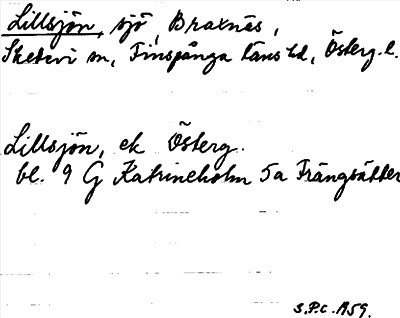 Lillsjön, sjö, Braxnäs,
Skedevi sn, Finspånga läns hd, Österg. l.
Lillsjön, ek Österg.
bl. 9 G Katrineholm 5a Trängsätter
S.P.C. 1959.